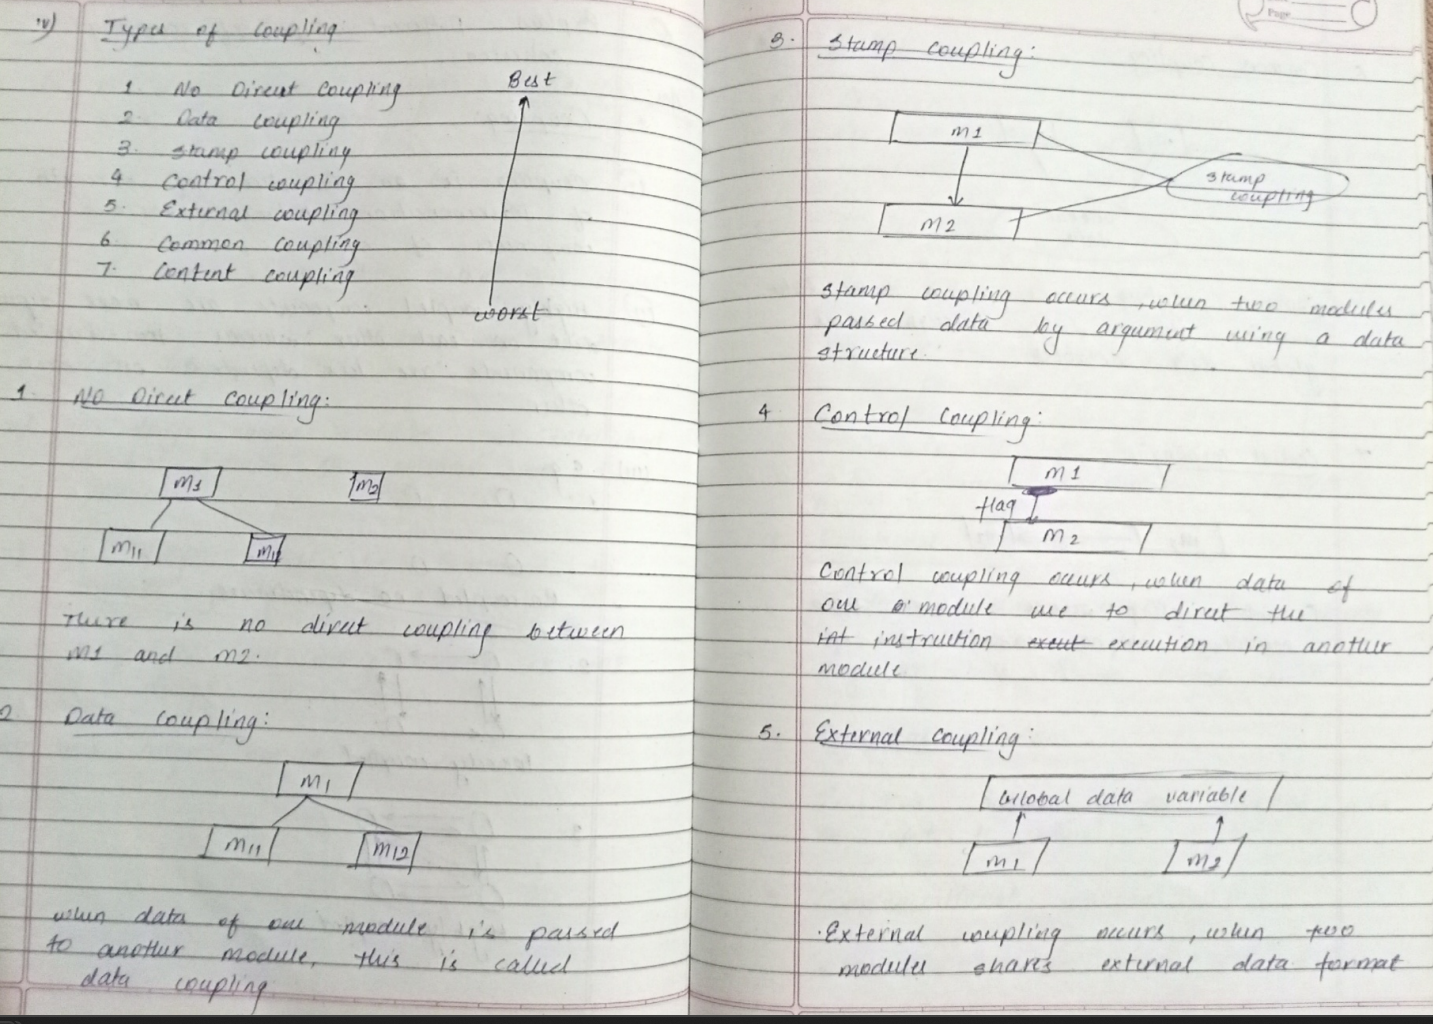 iv) Types of coupling
1 No Direct Coupling
2. Data coupling
3. stamp coupling
4 Control coupling
5. External coupling
6 Common coupling
7. Content coupling
Best
worst
1. No Direct coupling:
M1 M2
M11
There is no direct coupling between
M1 and M2.
2 Data coupling:
M1
M11 M12
when data of one module is passed
to another module, this is called
data coupling
Page
3. Stamp coupling:
M1
stamp
coupling
M2
stamp coupling occurs, when two modules
passed data by argument using a data
structure.
4 Control Coupling:
M1
flag
M2
Control coupling occurs, when data of
one module use to direct the
int instruction execut execution in another
module
5. External coupling:
Global data variable
M1 M2
External coupling occurs, when two
modules shares external data format